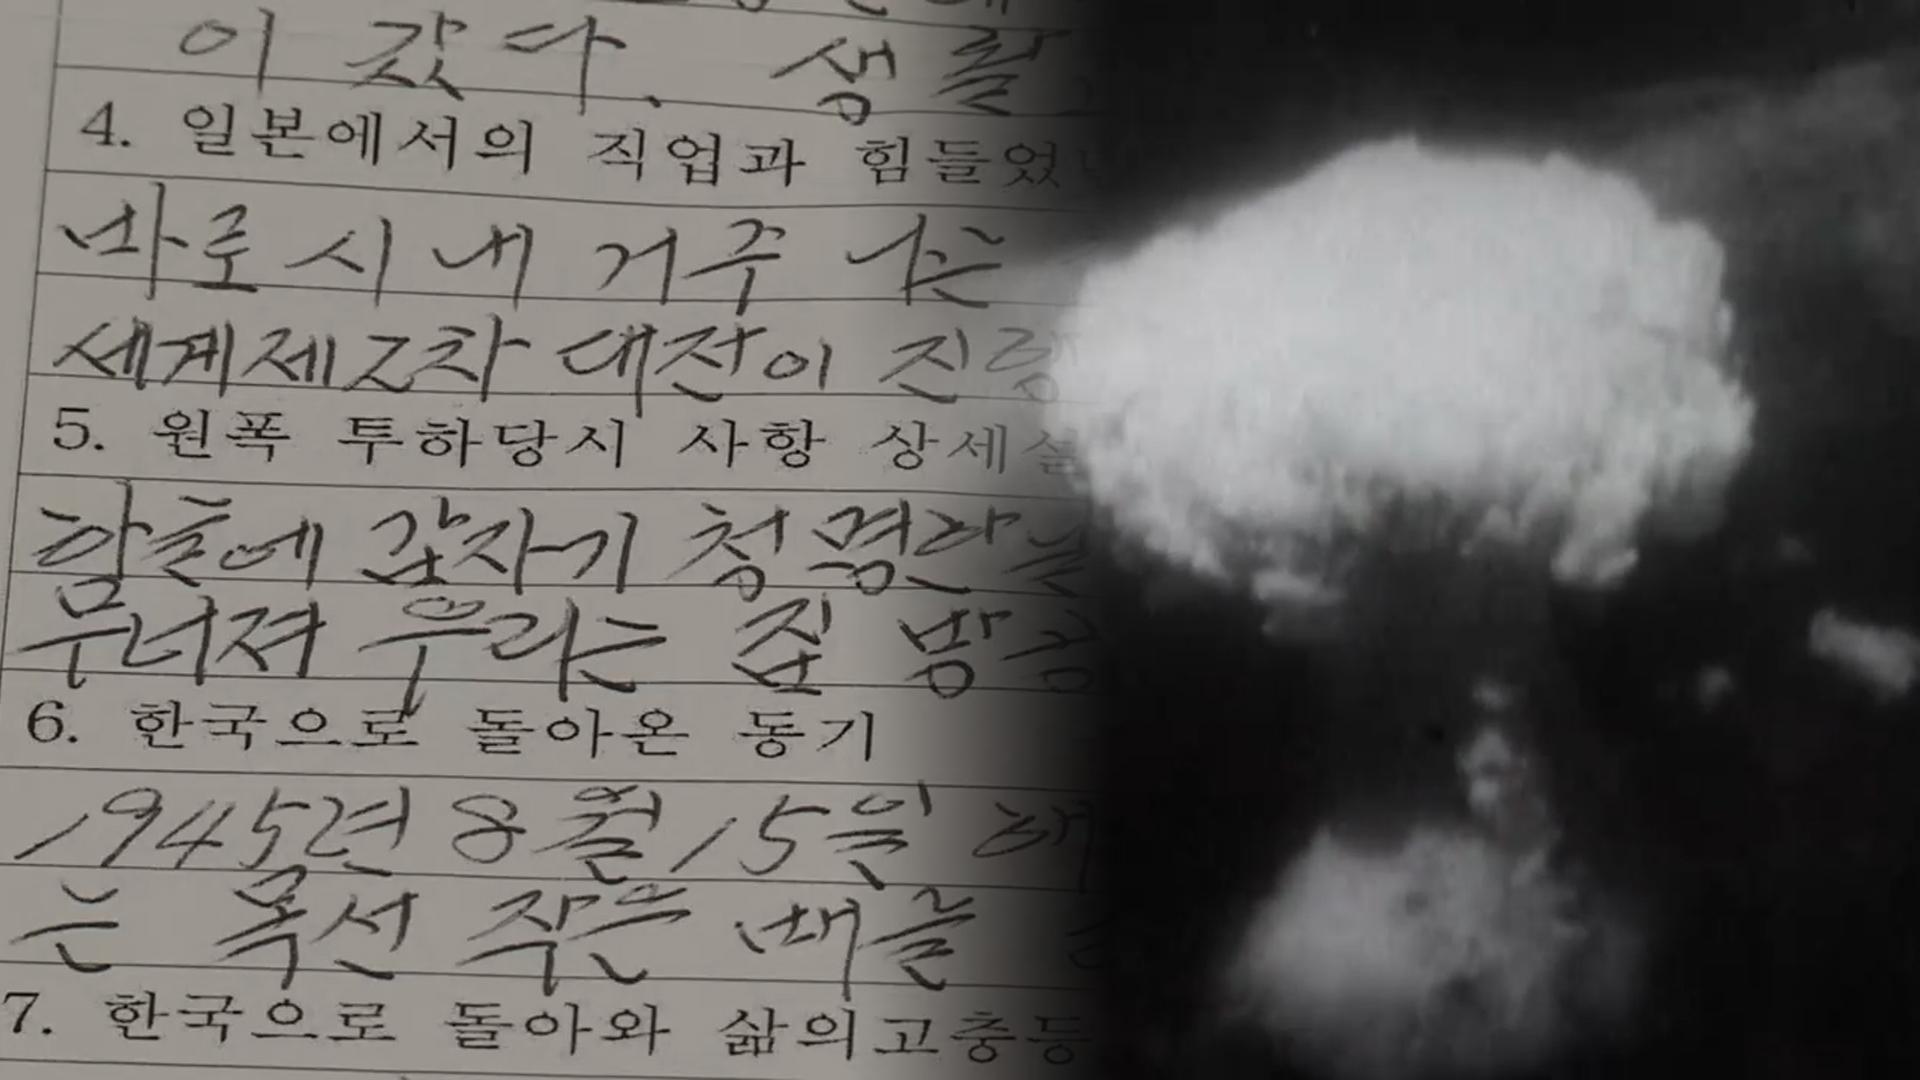 이 갔다. 생활
4. 일본에서의 직업과 힘들었
바로 시내 거주 나는
세계제2차 대전이 진행
5. 원폭 투하당시 사항 상세설
하늘에 갑자기 청명란
무너져 우리는 집 밖
6. 한국으로 돌아온 동기
1945년 8월 15일 해
는 목선 작은 배를
7. 한국으로 돌아와 삶의고충등